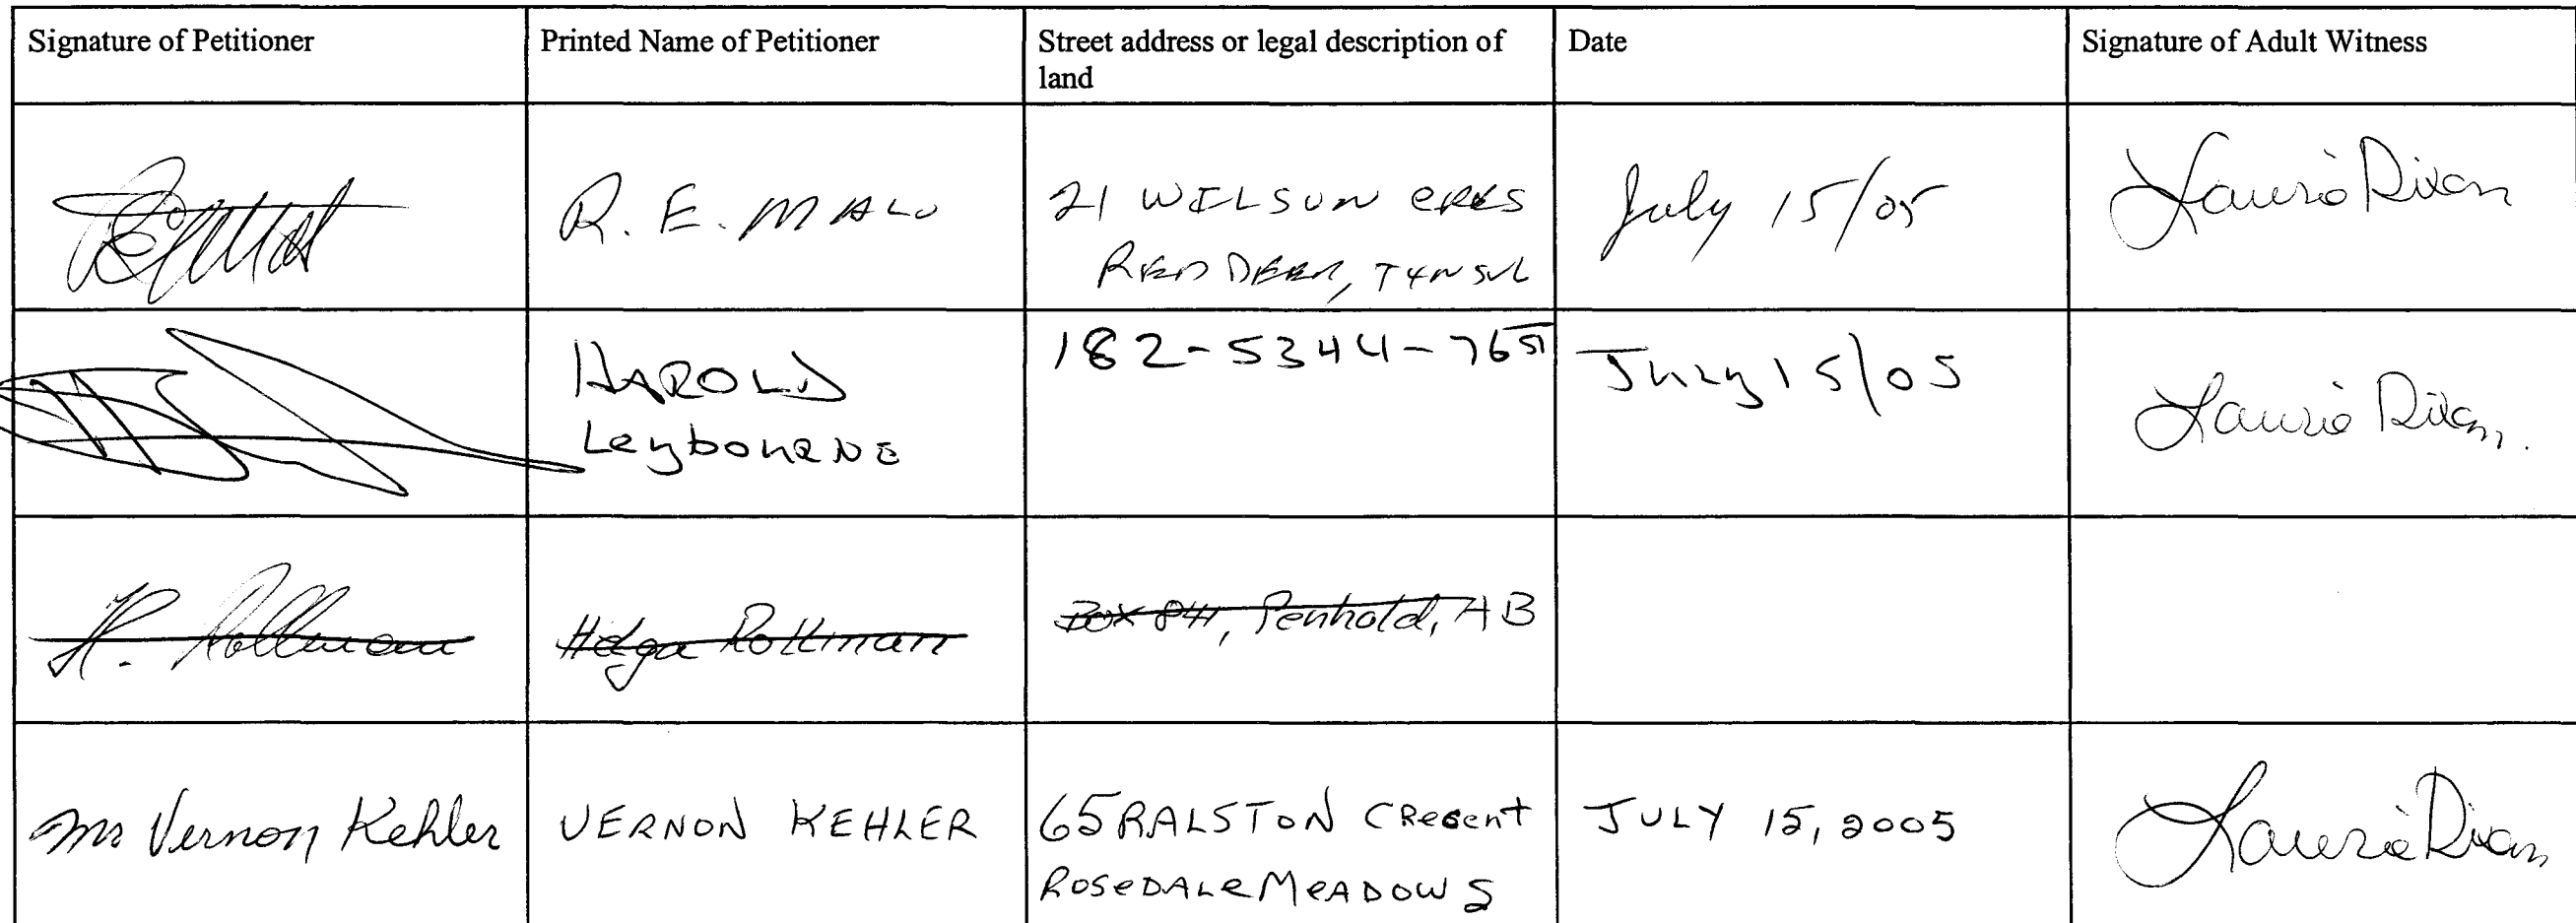 Signature of Petitioner
Printed Name of Petitioner
Street address or legal description of
land
Date
Signature of Adult Witness
R. E. MALO
21 WILSON CRES
RED DEER, T4N
July 15/05
Laurie Dixon
HAROLD
Leybourne
182-5344-76 ST
July 15/05
Laurie Dixon.
H. Rottmann
Helga Rottmann
Box 841, Penhold, AB
Mr Vernon Kehler
VERNON KEHLER
65 RALSTON CRecent
ROSeDALe MeADOWS
JULY 15, 2005
Laurie Dixon